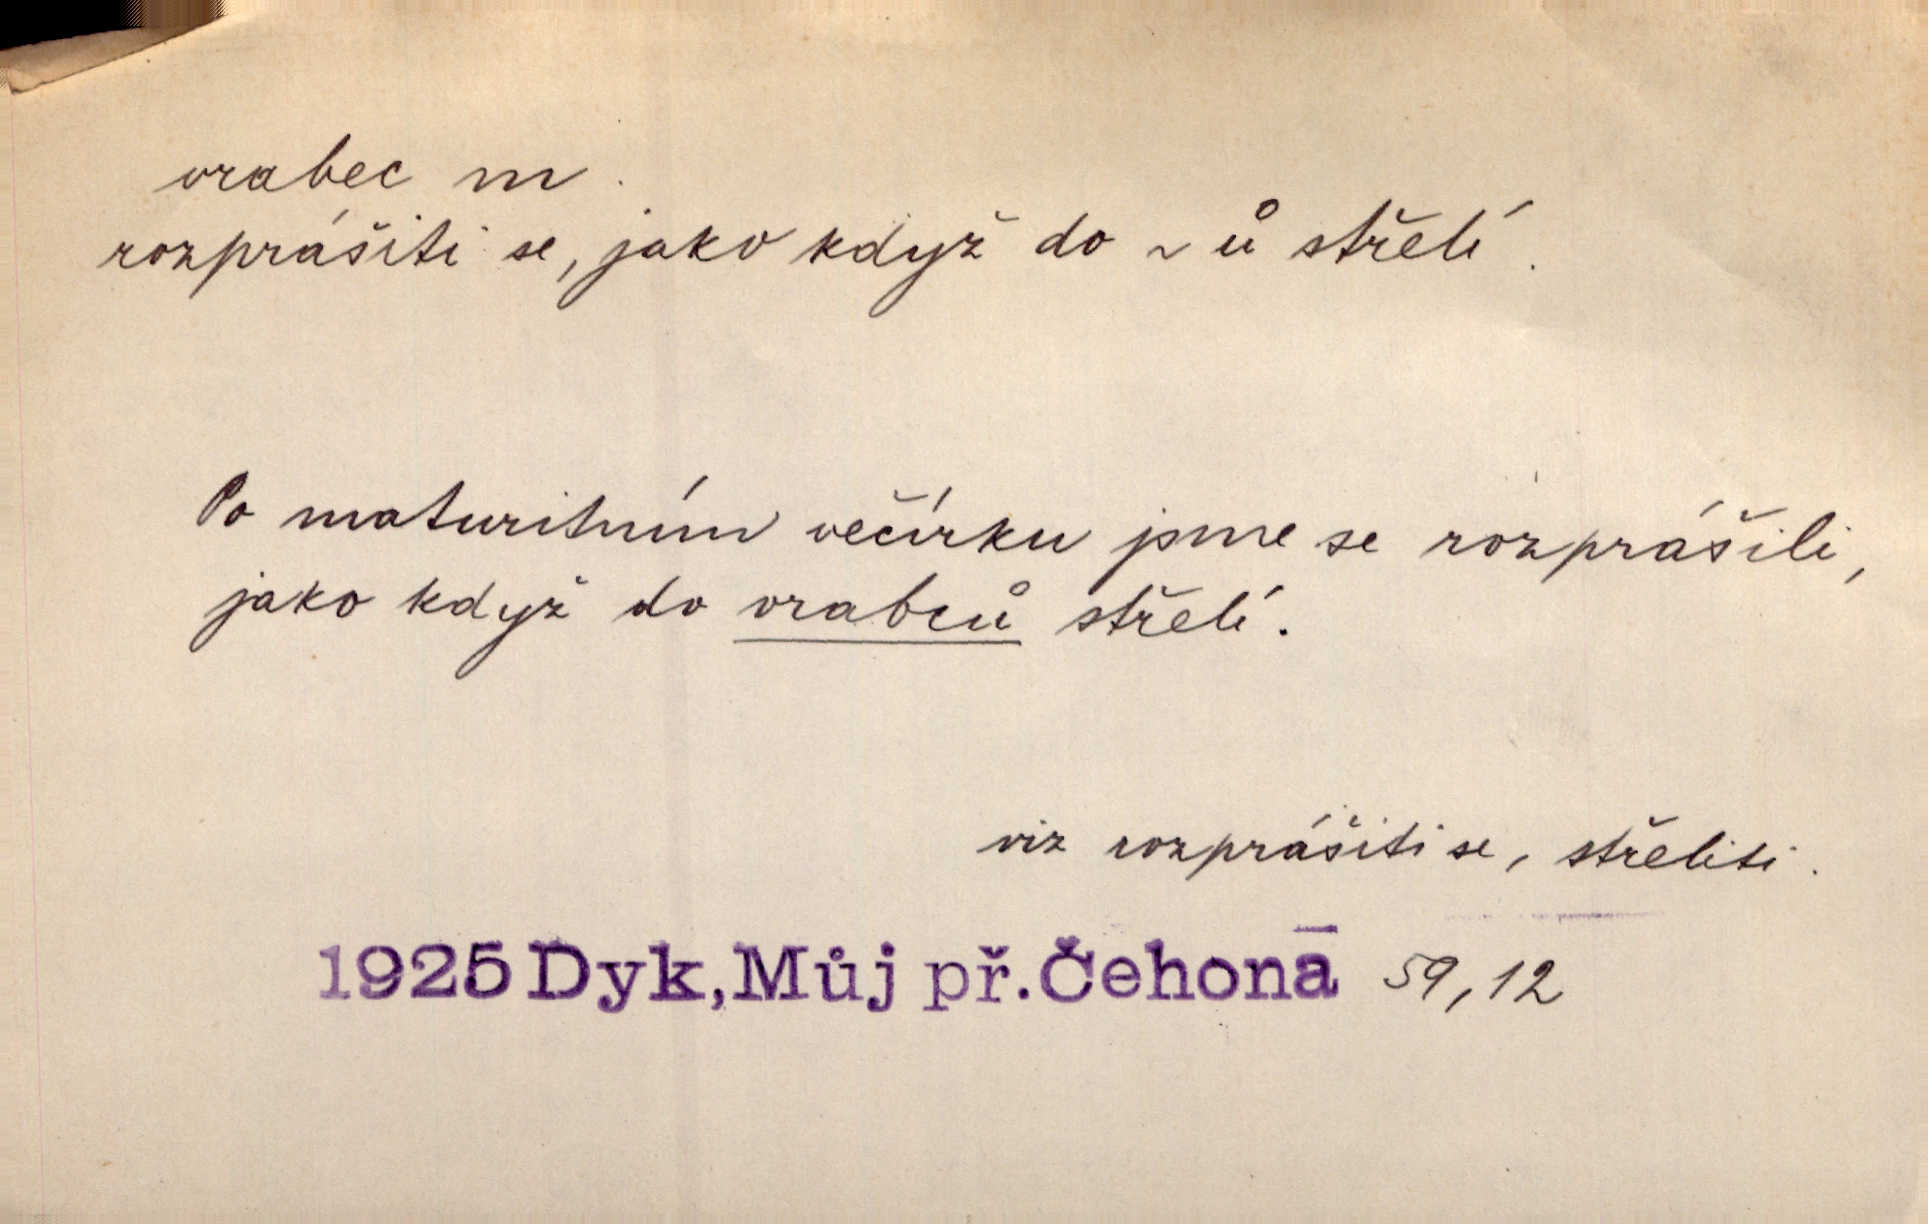 vrabec m.
rozprášiti se, jako když do ~ů střelí.
Po maturitním večírku jsme se rozprášili,
jako když do vrabců střelí.
viz rozprášiti se, střeliti.
1925 Dyk, Můj př. Čehona 59, 12